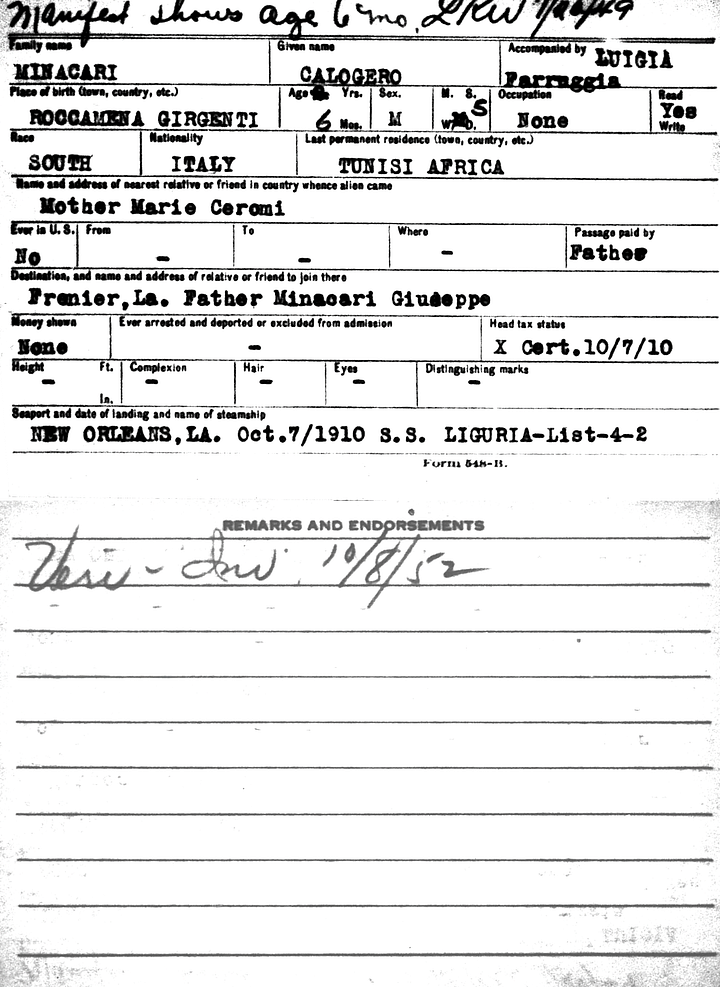 Manifest shows age 6 mo. LRW
Family name Given name Accompanied by LUIGIA
MINACARI CALOGERO Farruggia
Place of birth (town, country, etc.) Age Yrs. Sex. M. S. Occupation Read
ROCCAMENA GIRGENTI 6 Mos. M W. D. S None Yes
Write
Race Nationality Last permanent residence (town, country, etc.)
SOUTH ITALY TUNISI AFRICA
Name and address of nearest relative or friend in country whence alien came
Mother Marie Ceromi
Ever in U. S. From To Where Passage paid by
No - - - Father
Destination, and name and address of relative or friend to join there
Frenier,La. Father Minacari Giuseppe
Money shown Ever arrested and deported or excluded from admission Head tax status
None - X Cert.10/7/10
Height Ft. Complexion Hair Eyes Distinguishing marks
- - - - -
In.
Seaport and date of landing and name of steamship
NEW ORLEANS,LA. Oct.7/1910 S.S. LIGURIA-List-4-2
Form 548-B.
REMARKS AND ENDORSEMENTS
10/8/52